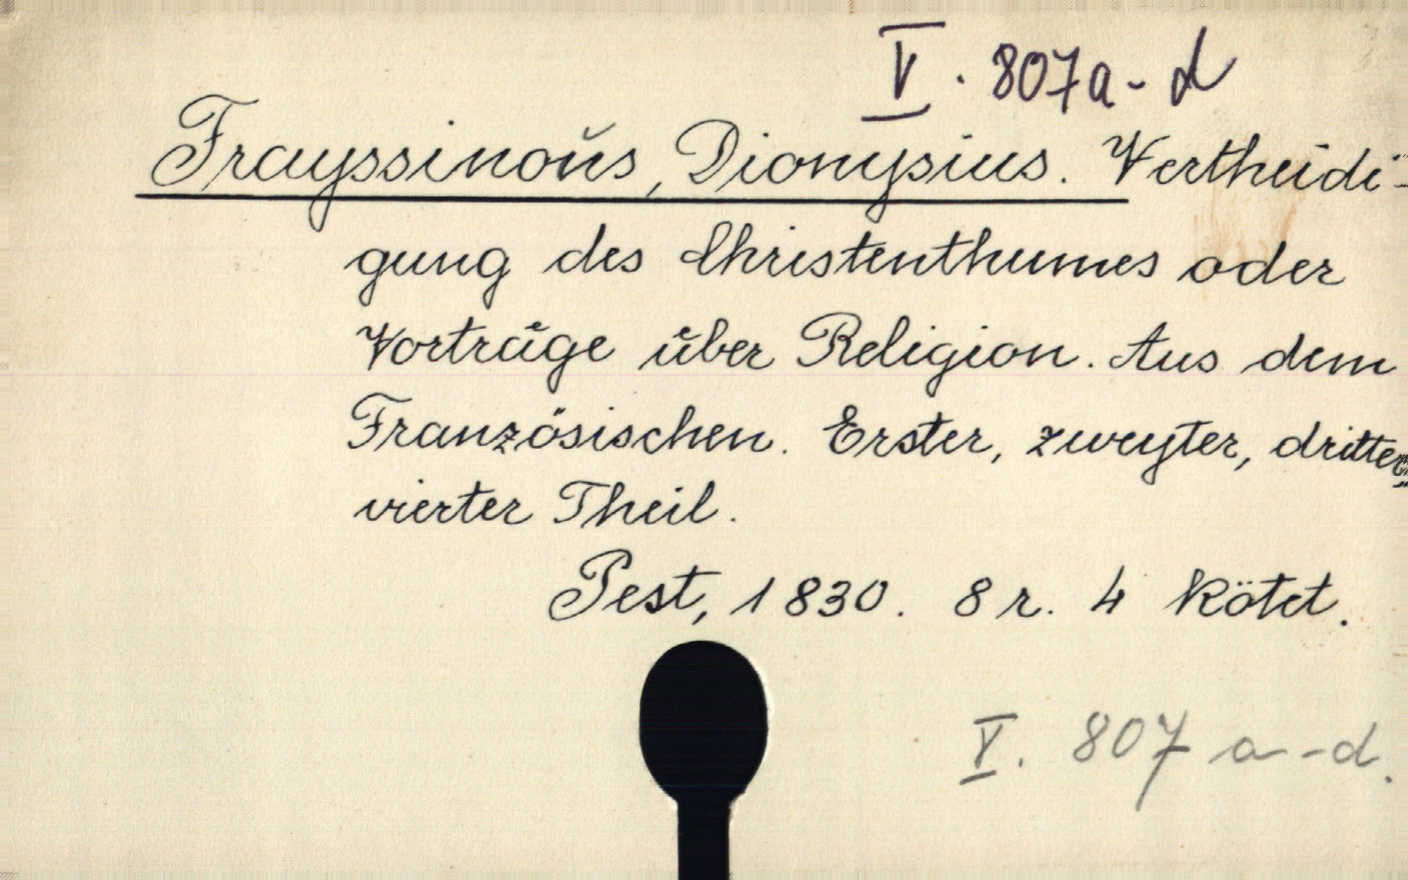 V. 807a-d
Frayssinoŭs, Dionysius. Vertheidi-
gung des Christenthumes oder
Vorträge über Religion. Aus dem
Französischen. Erster, zweyter, dritter,
vierter Theil.
Pest, 1830. 8 r. 4 kötet.
V. 807 a-d.